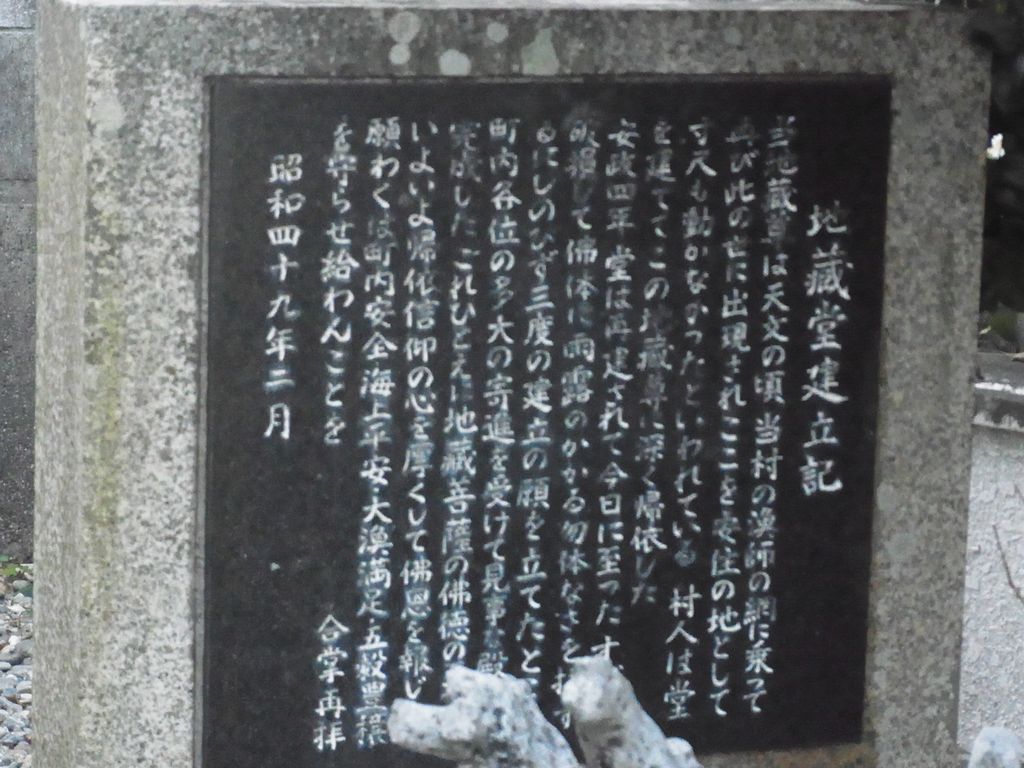 地蔵堂建立記
当地蔵尊は天文の頃 当村の漁師の網に乗って
再び此の世に出現されここを安住の地として
寸尺も動かなかったといわれている 村人は堂
を建ててこの地蔵尊に深く帰依した
安政四年 堂は再建されて今日に至った
破損して佛体に雨露のかかる勿体なさを
るにしのびず三度の建立の願を立てたと
町内各位の多大の寄進を受けて見事な殿
完成した これひとえに地蔵菩薩の佛徳の
いよいよ帰依信仰の心を厚くして佛恩を報じ
願わくは町内安全海上平安・大漁満足・五穀豊穣
を守らせ給わんことを 合掌再拝
昭和四十九年二月